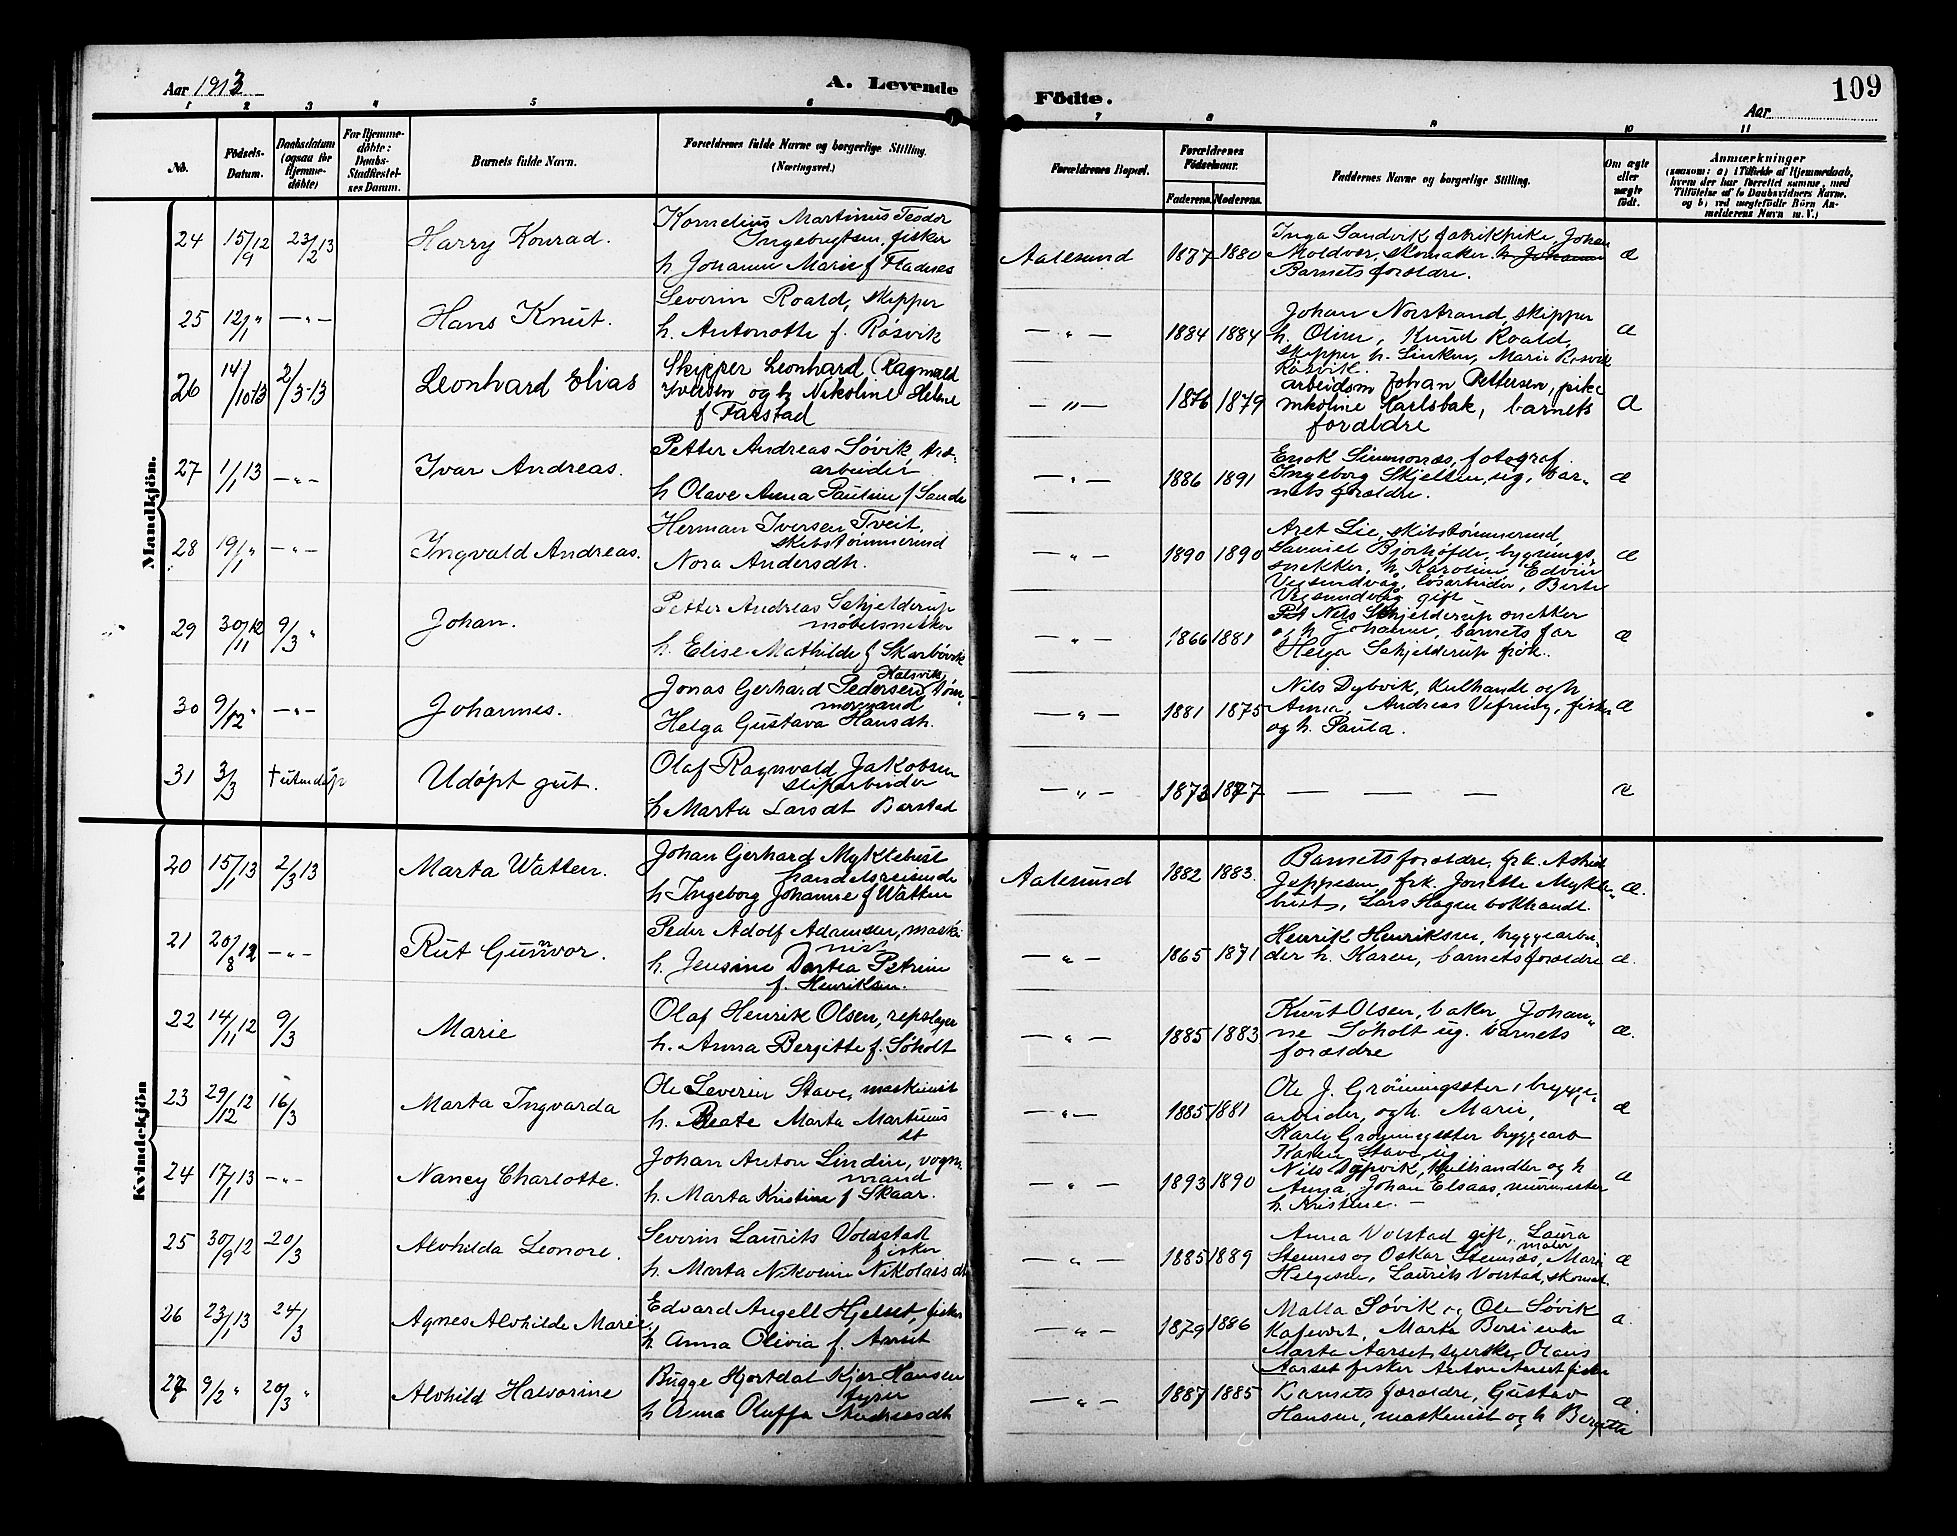 Aar 1913
A. Levende
Födte.
109
Aar
1 2 3 4 5 6 7 8 9 10 11
No.
Födsels-
Datum.
Daabsdatum
(ogsaa for
Hjemme-
döbte)
For Hjemme-
döbte:
Daabs-
Stadfæstel-
ses Datum.
Barnets fulde Navn.
Forældrenes fulde Navne og borgerlige Stilling.
(Næringsvei.)
Forældrenes Bopæl.
Forældrenes
Födselsaar.
Faderens. Moderens.
Faddernes Navne og borgerlige Stilling.
Om ægte
eller
uægte
födt.
Anmærkninger
(saasom: a) i Tilfælde af Hjemmedaab,
hvem der har forrettet samme, med
Tilföielse af to Daabsvidners Navne.
og b) ved uægtefödte Börn An-
melderens Navn m. V.)
Mandkjön.
24 15/9 12 23/2 13 Harry Konrad.
Kornelius Martinus Teodor
Ingebrigtsen, fisker
h. Johanne Marie f Fladnes
Aalesund 1877 1880
Inga Sandvik fabrikpike, Johan
Moldvær, skomaker. h. Johanne
Barnets forældre.
æ
25 12/1 " — " — Hans Knut.
Severin Roald, skipper
h. Antonette f. Røsvik
— " — 1884 1884
Johan Norstrand, skipper
h. Oline, Knud Roald,
skipper h. Marie Røsvik
Røsvik.
æ
26 14/10 13 2/3-13 Leonhard Elias
Skipper Leonhard Ragnvald
Iversen og h. Nikoline Helene
f Farstad
— " — 1876 1879
arbeidsm Johan Pettersen, pike
nikoline Karlsbak, barnets
forældre
æ
27 1/1 13 — " — Ivar Andreas.
Petter Andreas Søvik,
arbeider
h Olave Anna Pauline f Sande
— " — 1886 1891
Enok Simmonæs, fotograf.
Ingeborg Skjelten, ug, bar-
nets forældre.
æ
28 19/1 " — " — Ingvald Andreas.
Herman Iversen Tveit,
skibstømmermd
Nora Andersdh.
— " — 1890 1890
Aret Lie, skibstømmermd,
Samuel Bjørhøfde, bygnings
snekker, h. Karoline, Edvin
Vegsundvåg, løsarbeider, Berte
Vegsundvåg gift
æ
29 30/11 12 9/3 " Johan.
Petter Andreas Schjelderup
møbelsnekker
h. Elise Mathilde f Skarbøvik
— " — 1866 1881
Pet Nils Schjelderup snekker
og h Johanne, barnets far
Helga Schjelderup frøk.
æ
30 9/12 " — " — Johannes.
Kalsvik,
Jonas Gerhard Pedersen tøm-
mermand
Helga Gustava Hansdh.
— " — 1881 1875
Nils Dybvik, kulhandl og h
Anna, Andreas Vefring, fisker
og h. Paula.
æ
31 3/3 † utendåp Udøpt gut.
Olaf Ragnvald Jakobsen
sliparbeider
h Marta Larsdt Barstad
— " — 1873 1877 — — —
æ
Kvindekjön
20 15/1 13 2/3 13 Marta Watten.
Johan Gerhard Myklebust
handelsreisende
h Ingeborg Johanne f Watten
Aalesund 1882 1883.
Barnets forældre, frk. Astrid
Jeppesen, frk. Jonette Mykle-
bust, Lars Hagen bokhandl.
æ.
21 20/8 12 — " — Rut Gunvor.
Peder Adolf Adamsen, maski-
nist
h. Jensine Dortea Petrine
f. Henriksen.
— " — 1865 1871
Henrik Henriksen, bryggearbei-
der h. Karen, barnets forældre
æ.
22 14/11 12 9/3 Marie
Olaf Henrik Olsen, repslager
h. Anna Bergitte f. Søholt
— " — 1885 1883
Kurt Olsen, baker, Johan-
ne Søholt ug. barnets
forældre
æ.
23 29/12 12 16/3 Marta Ingvarda
Ole Severin Stave, maskinist
h. Beate Marta Martinus
dt
— " — 1885 1881
Ole J. Grønningsæter, brygge-
arbeider, og h. Marie,
Karl Grønningsæter bryggearb
Karen Stave ug
æ
24 17/1 13 — " — Nancy Charlotte.
Johan Anton Lindin, vogn-
mand
h. Marta Kristine f Skaar.
— " — 1893 1890
Nils Dybvik, kulhandler og h
Anna, Johan Elsaas, murmester
h. Kristine. —
æ
25 30/9 12 20/3 Alvhilda Leonore.
Severin Laurits Voldstad
fisker
h. Marta Nikoline Nikolais dt
— " — 1885 1889
Anna Volstad gift, Laura
maler
Stennes og Oskar Stennes, Marie
Helgesen, Laurits Volstad, skomak.
æ
26 23/1 13 24/3 Agnes Alvhilde Marie.
Edvard Angell Hjelset, fisker
h. Anna Olivia f. Aarset
— " — 1879 1886
Malla Søvik og Ole Søvik
Kafevært, Marta enke
Marta Aarset syerske, Olaus
Aarset fisker Anton Aarset fisker
æ.
27 9/2 " 20/3 " Alvhild Halvorine
Bugge Hjortdal Kjer Hansen
fyrer
h Anna Oluffa Andreasdh.
— " — 1887 1885
Barnets forældre, Gustav
Hansen, maskinist og h Bergitta
æ.